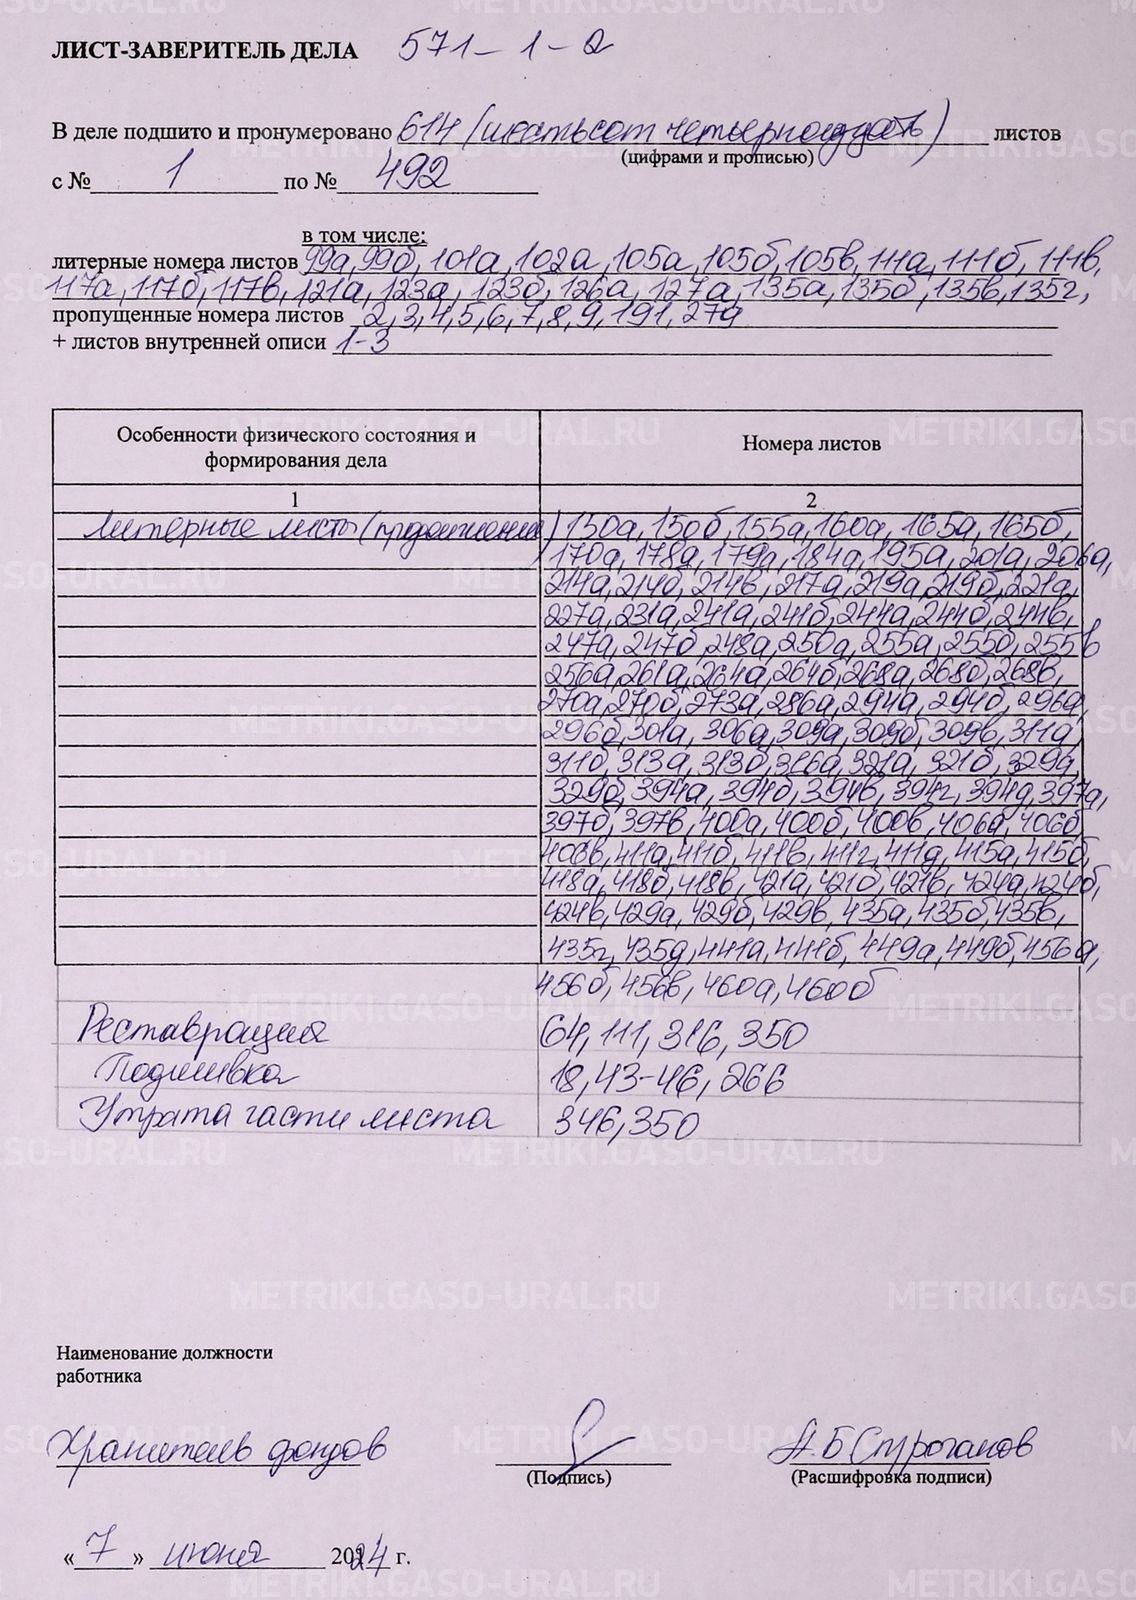 ЛИСТ-ЗАВЕРИТЕЛЬ ДЕЛА 571-1-2
В деле подшито и пронумеровано 614 (шестьсот четырнадцать) листов
(цифрами и прописью)
с № 1 по № 492
в том числе:
литерные номера листов 99а, 99б, 101а, 102а, 105а, 105б, 105в, 111а, 111б, 111в,
117а, 117б, 117в, 121а, 123а, 123б, 126а, 127а, 135а, 135б, 135в, 135г,
пропущенные номера листов 2, 3, 4, 5, 6, 7, 8, 9, 191, 279
+ листов внутренней описи 1-3
Особенности физического состояния и формирования дела Номера листов
1 2
Литерные листы (продолжение) 150а, 150б, 155а, 160а, 165а, 165б,
170а, 178а, 179а, 184а, 195а, 201а, 206а,
214а, 214б, 214в, 217а, 219а, 219б, 221а,
227а, 231а, 241а, 241б, 244а, 244б, 244в,
247а, 247б, 248а, 250а, 255а, 255б, 255в
256а, 261а, 264а, 264б, 268а, 268б, 268в,
270а, 270б, 273а, 286а, 294а, 294б, 296а,
296б, 301а, 306а, 309а, 309б, 309в, 311а,
311б, 313а, 313б, 316а, 321а, 321б, 329а,
329б, 394а, 394б, 394в, 394г, 394д, 397а,
397б, 397в, 400а, 400б, 400в, 406а, 406б,
406в, 411а, 411б, 411в, 411г, 411д, 415а, 415б,
418а, 418б, 418в, 421а, 421б, 421в, 424а, 424б,
424в, 429а, 429б, 429в, 435а, 435б, 435в,
435г, 435д, 441а, 441б, 449а, 449б, 456а,
456б, 456в, 460а, 460б
Реставрация 64, 111, 316, 350
Подшивка 18, 43-46, 266
Утрата части листа 346, 350
Наименование должности
работника
Хранитель фондов А.Б Строганов
(Подпись) (Расшифровка подписи)
«7» июня 2024 г.
METRIKI.GASO-URAL.RU